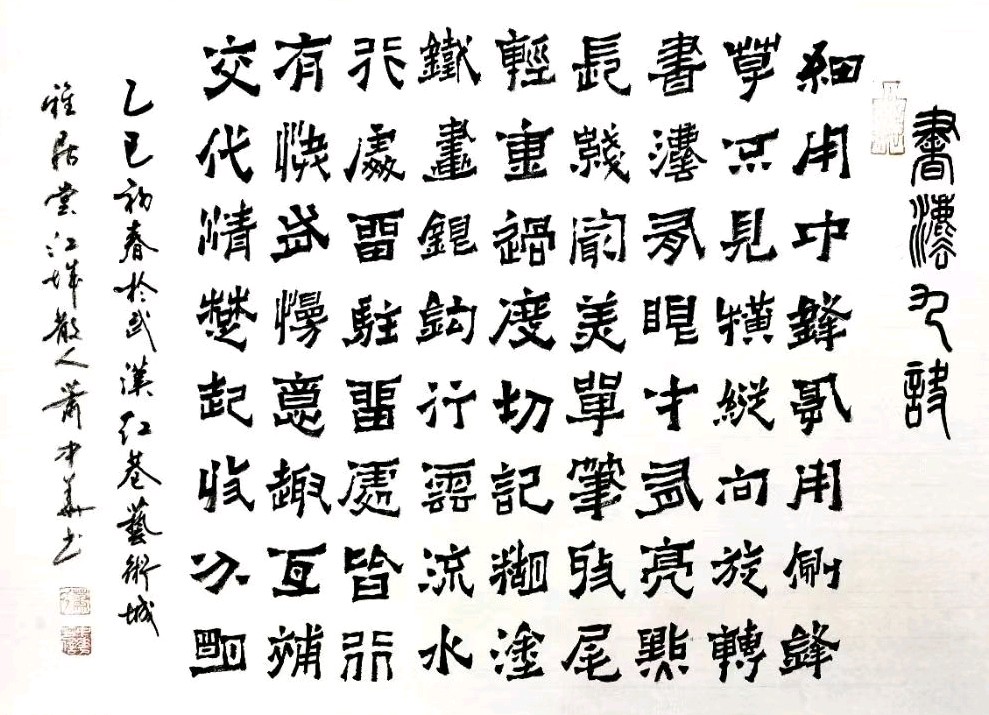 書法九訣
細用中鋒用側鋒
草点見橫縱向旋轉
書法有眼才有亮點
長綫美單筆尾
輕重過度切記糊塗
鐵畫銀鈎行雲流水
行處留駐留處皆行
有快有慢意趣互補
交代清楚起收分明
乙巳初春於武漢紅巷藝術城
雅居堂江城散人蕭中華书